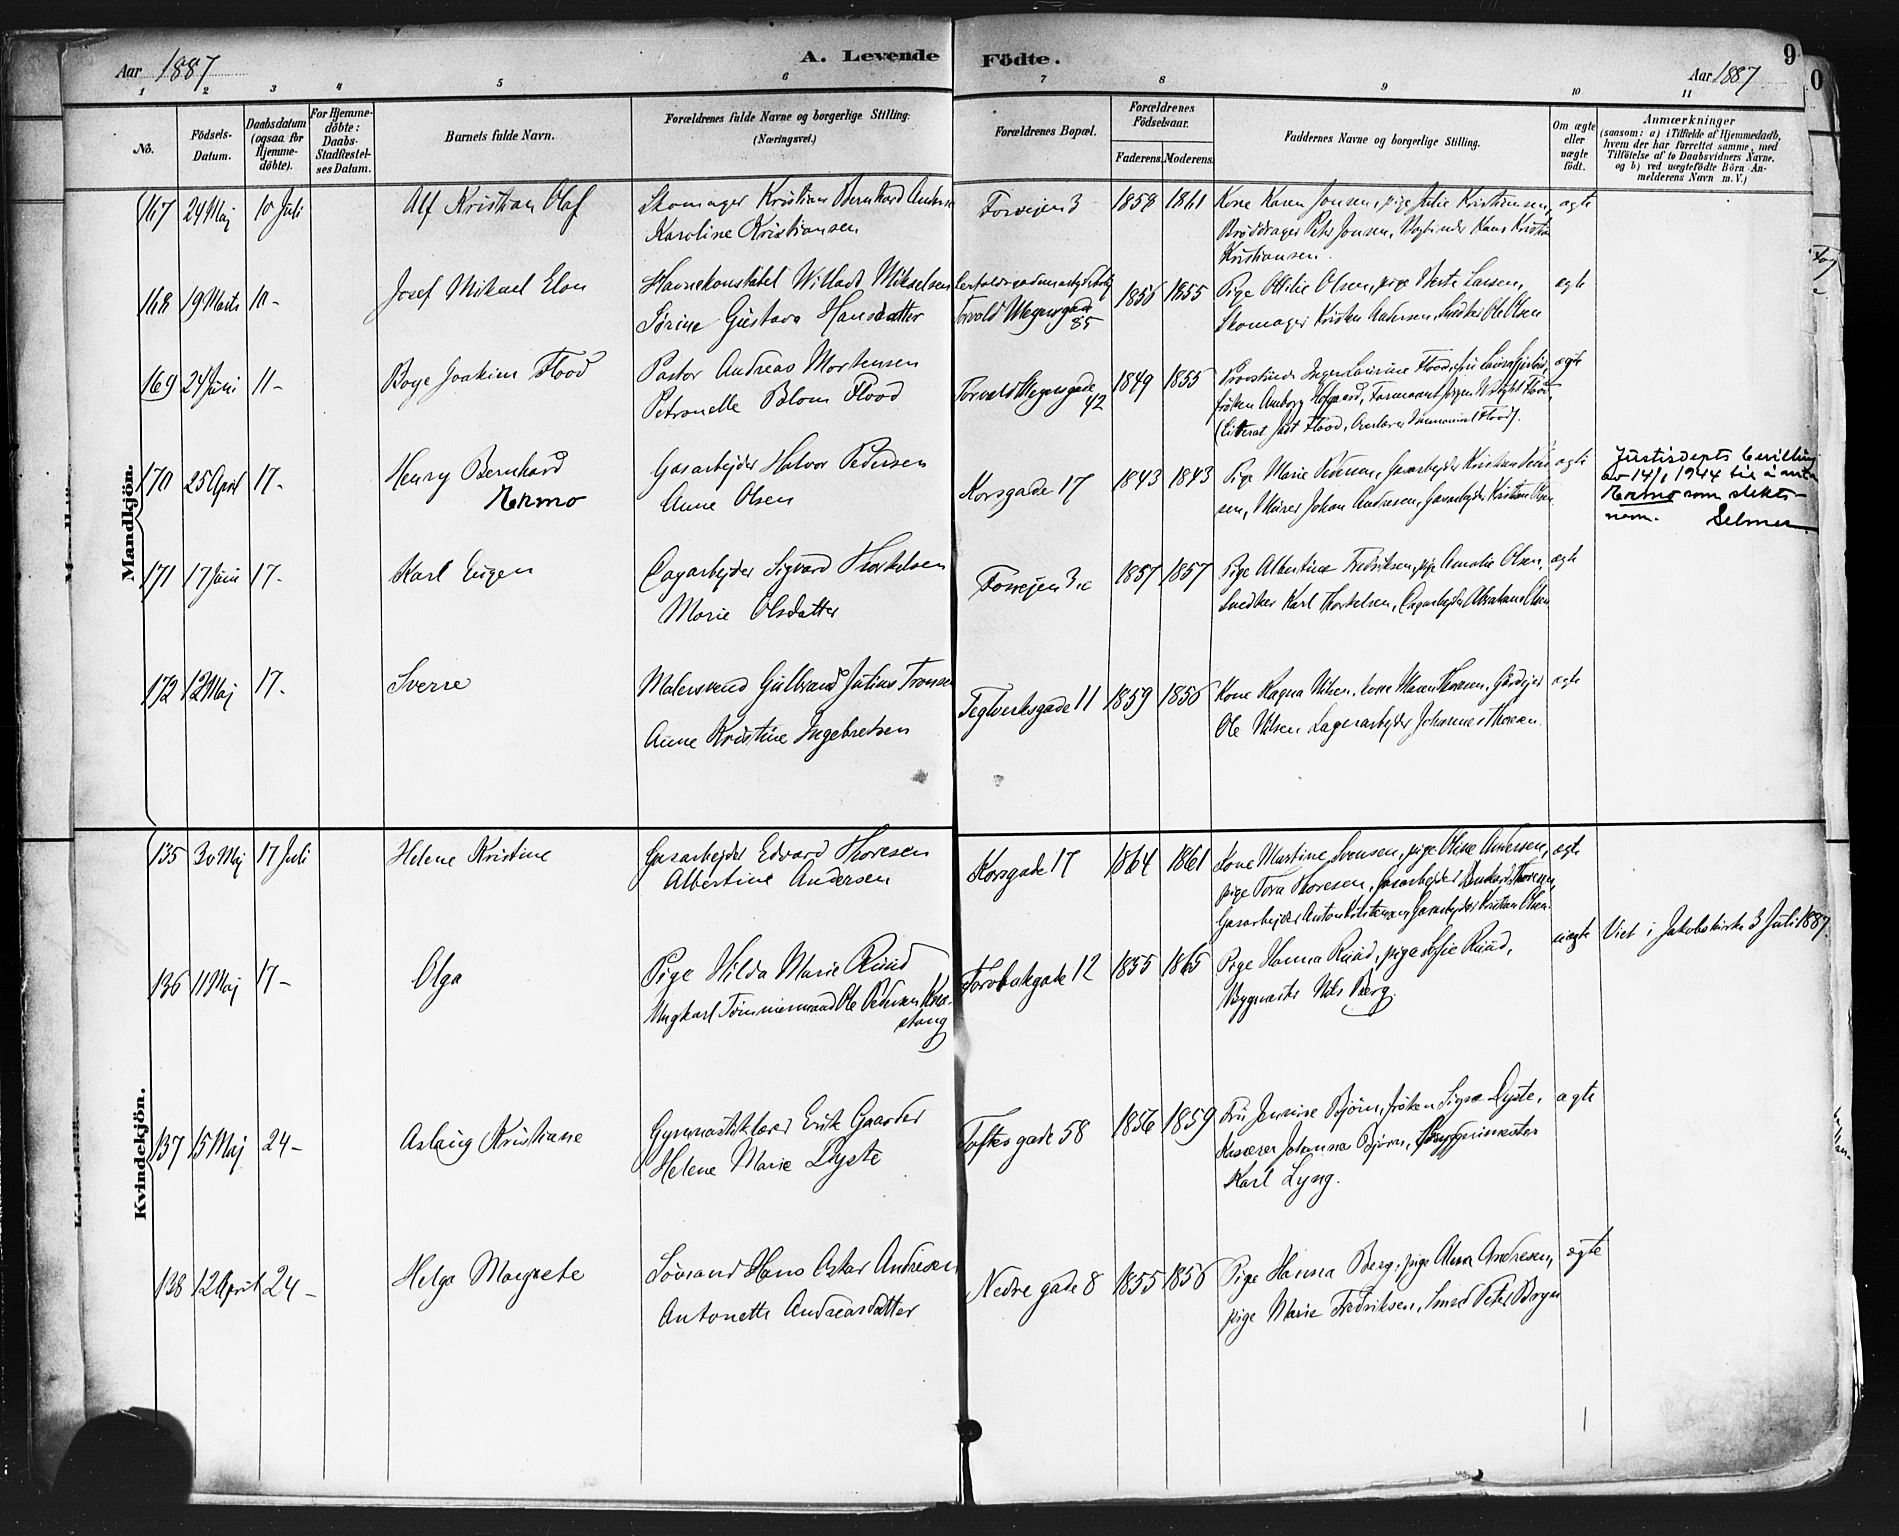 Aar 1887
A. Levende Födte.
9
Aar 1887
1 2 3 4 5 6 7 8 9 10 11
No.
Födsels-Datum.
Daabsdatum (ogsaa for Hjemme-döbte).
For Hjemme-döbte: Daabs-Stadfæstel-ses Datum.
Barnets fulde Navn.
Forældrenes fulde Navne og borgerlige Stilling. (Næringsvei.)
Forældrenes Bopæl.
Forældrenes Födselsaar.
Faderens. Moderens.
Faddernes Navne og borgerlige Stilling.
Om ægte eller uægte födt.
Anmærkninger
(saasom: a) i Tilfælde af Hjemmedaab,
hvem der har forrettet samme, med
Tilföielse af to Daabsvidners Navne.
og b) ved uægtefödte Börn An-
melderens Navn m. V.)
Mandkjön.
167 24 Maj 10 Juli Alf Kristian Olaf Skomager Kristian Bernhard Anders Forvejen 3 1858 1861 Kone Karen Jonsen, pige Julie Kristiansen, ægte
Karoline Kristiansen Peter Jonsen,
Kristiansen.
168 19 Marts 10 - Josef Mikael Elon Havnekonstabel Willads Mikelsen 1856 1855 Pige Ottilie Olsen, pige Berte Larsen, ægte
Sørine Gustava Hansdatter Torvald Meyersgade 85 Skomager Kristen Andersen, Snedker Ole Olsen
169 24 Juni 11 - Boye Joakim Flood Pastor Andreas Mortensen Torvald Meyersgade 42 1849 1855 Provstinde Inger Laurine Flood, ægte
Petronelle Blom Flood frøken Hofgaard,
(Litterat Just Flood, Flood).
170 25 April 17 - Henry Bernhard Gasarbejder Halvor Pedersen Korsgade 17 1843 1843 Pige Marie Pedersen, Gasarbejder Kristian ægte
Ermo Anne Olsen sen, Murer Johan Andresen, Gasarbejder Kristian Olsen
Justisdepts bevilling
av 14/1 1944 til å anta
Ermo som slekts-
navn. Selmer
171 17 Juni 17 - Karl Eugen Dagarbejder Sigvard Thorkelsen Forvejen 3 c 1857 1857 Pige Albertine Fredriksen, pige Amalie Olsen, ægte
Marie Olsdatter Snedker Karl Thorkelsen, Dagarbejder Abraham Olsen
172 12 Maj 17 - Sverre Malersvend Gulbrand Julius Tronsen Teglverksgade 11 1859 1856 Kone Ragna Nilsen, kone Maren Thoresen, ægte
Anne Kristine Ingebretsen Ole Nilsen, Lagerarbejder Johannes Thoresen.
Kvindekjön.
135 30 Maj 17 Juli Helene Kristine Gasarbejder Edvard Thoresen Korsgade 17 1864 1861 Kone Martine Svensen, pige Oline Andersen, ægte
Albertine Andersen pige Tora Thoresen, Gasarbejder Thoresen,
Gasarbejder Anton Gasarbejder Kristian Olsen.
136 11 Maj 17 - Olga Pige Hilda Marie Ruud Torvbakgade 12 1855 1865 Pige Hanna Ruud, pige Sofie Ruud, uægte Viet i Jakobskirke 3 Juli 1887.
Ungkarl Tømmermand Ole Pedersen Kna- Bygmester Nils Berg.
stang
137 15 Maj 24 - Aslaug Kristiane Gymnastiklærer Erik Gaarder Toftesgade 58 1856 1859 Fru Jensine Bjørn, frøken Signe Dyste, ægte
Helene Marie Dyste Kasserer Johannes Bjørn, Bryggerimester
Karl Lyng.
138 12 April 24 - Helga Margrete Sømand Hans Oskar Andresen Nedre gade 8 1855 1856 Pige Hanna Berg, pige Alma Andresen, ægte
Antonette Andreasdatter pige Marie Fredriksen, Smed Peter